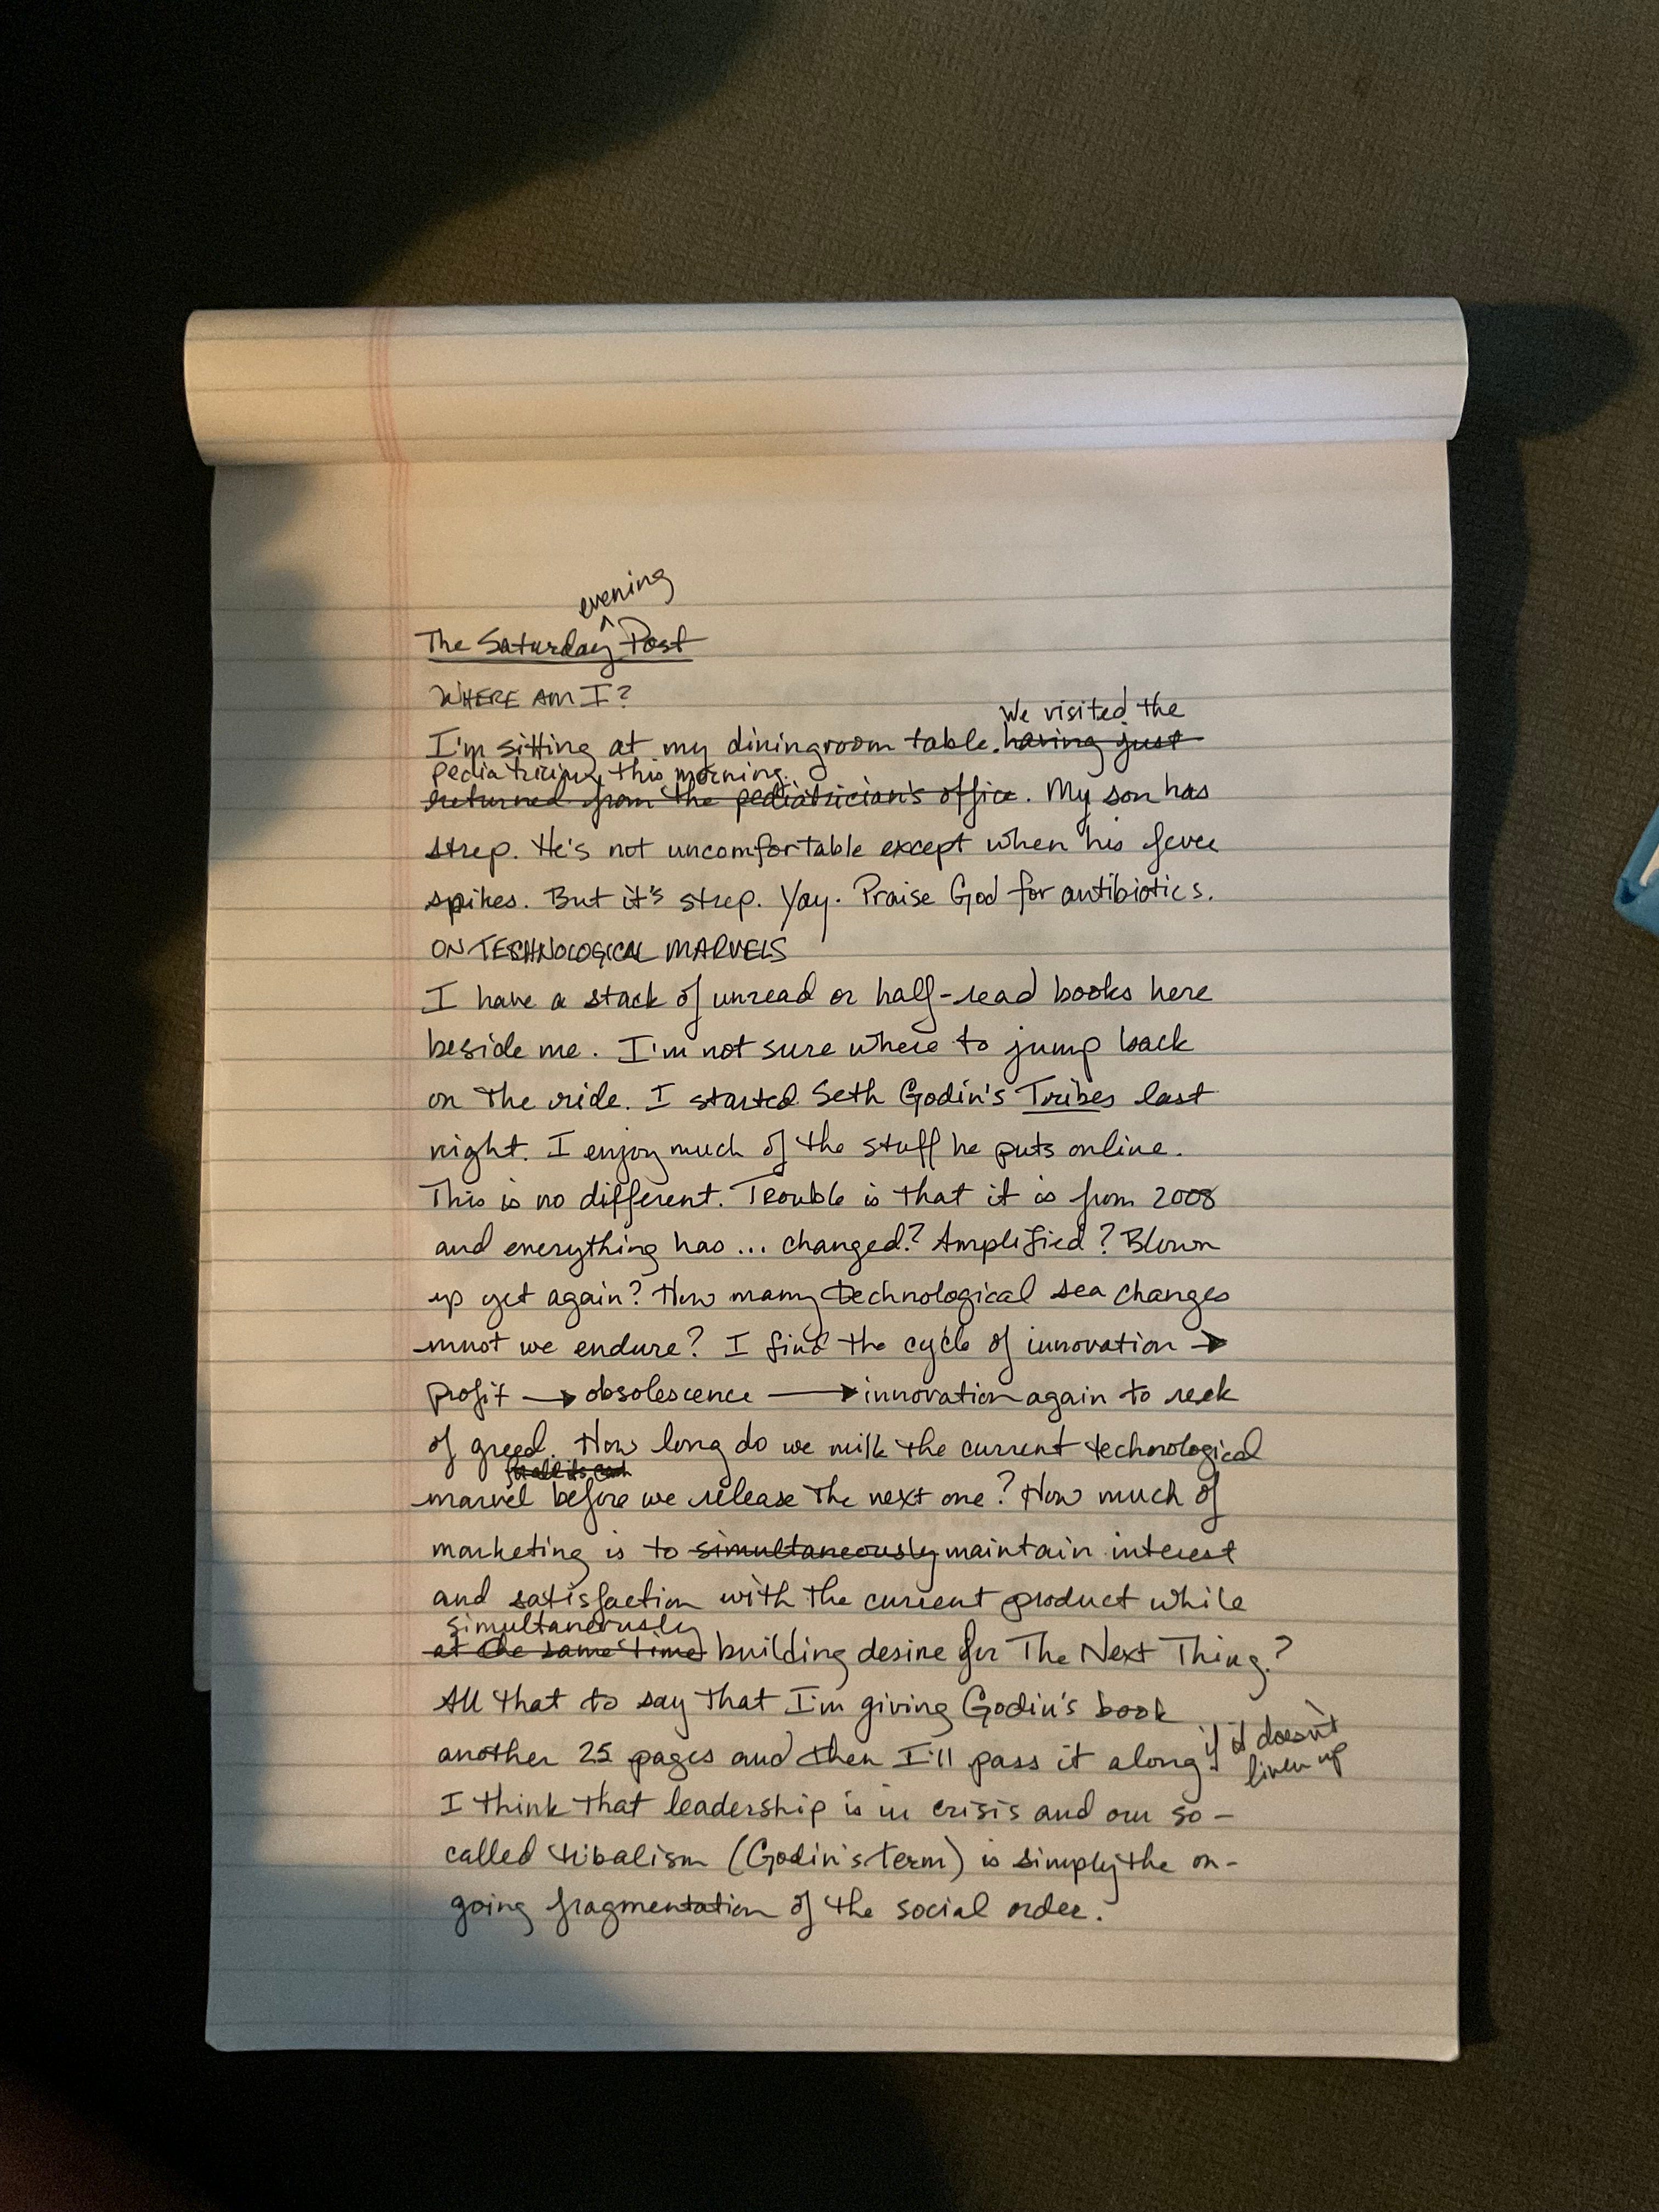 evening
The Saturday ^ Post
WHERE AM I?
We visited the
I'm sitting at my diningroom table. having just
pediatrician this morning.
returned from the pediatrician's office. My son has
strep. He's not uncomfortable except when his fever
spikes. But it's strep. Yay. Praise God for antibiotics.
ON TECHNOLOGICAL MARVELS
I have a stack of unread or half-read books here
beside me. I'm not sure where to jump back
on the ride. I started Seth Godin's Tribes last
night. I enjoy much of the stuff he puts online.
This is no different. Trouble is that it is from 2008
and everything has ... changed? Amplified? Blown
up yet again? How many technological sea changes
must we endure? I find the cycle of innovation →
profit → obsolescence → innovation again to reek
of greed. How long do we milk the current technological
for all its cash
marvel before we release the next one? How much of
marketing is to simultaneously maintain interest
and satisfaction with the current product while
simultaneously
at the same time building desire for The Next Thing?
All that to say that I'm giving Godin's book
another 25 pages and then I'll pass it along if it doesn't
liven up
I think that leadership is in crisis and our so-
called tribalism (Godin's term) is simply the on-
going fragmentation of the social order.